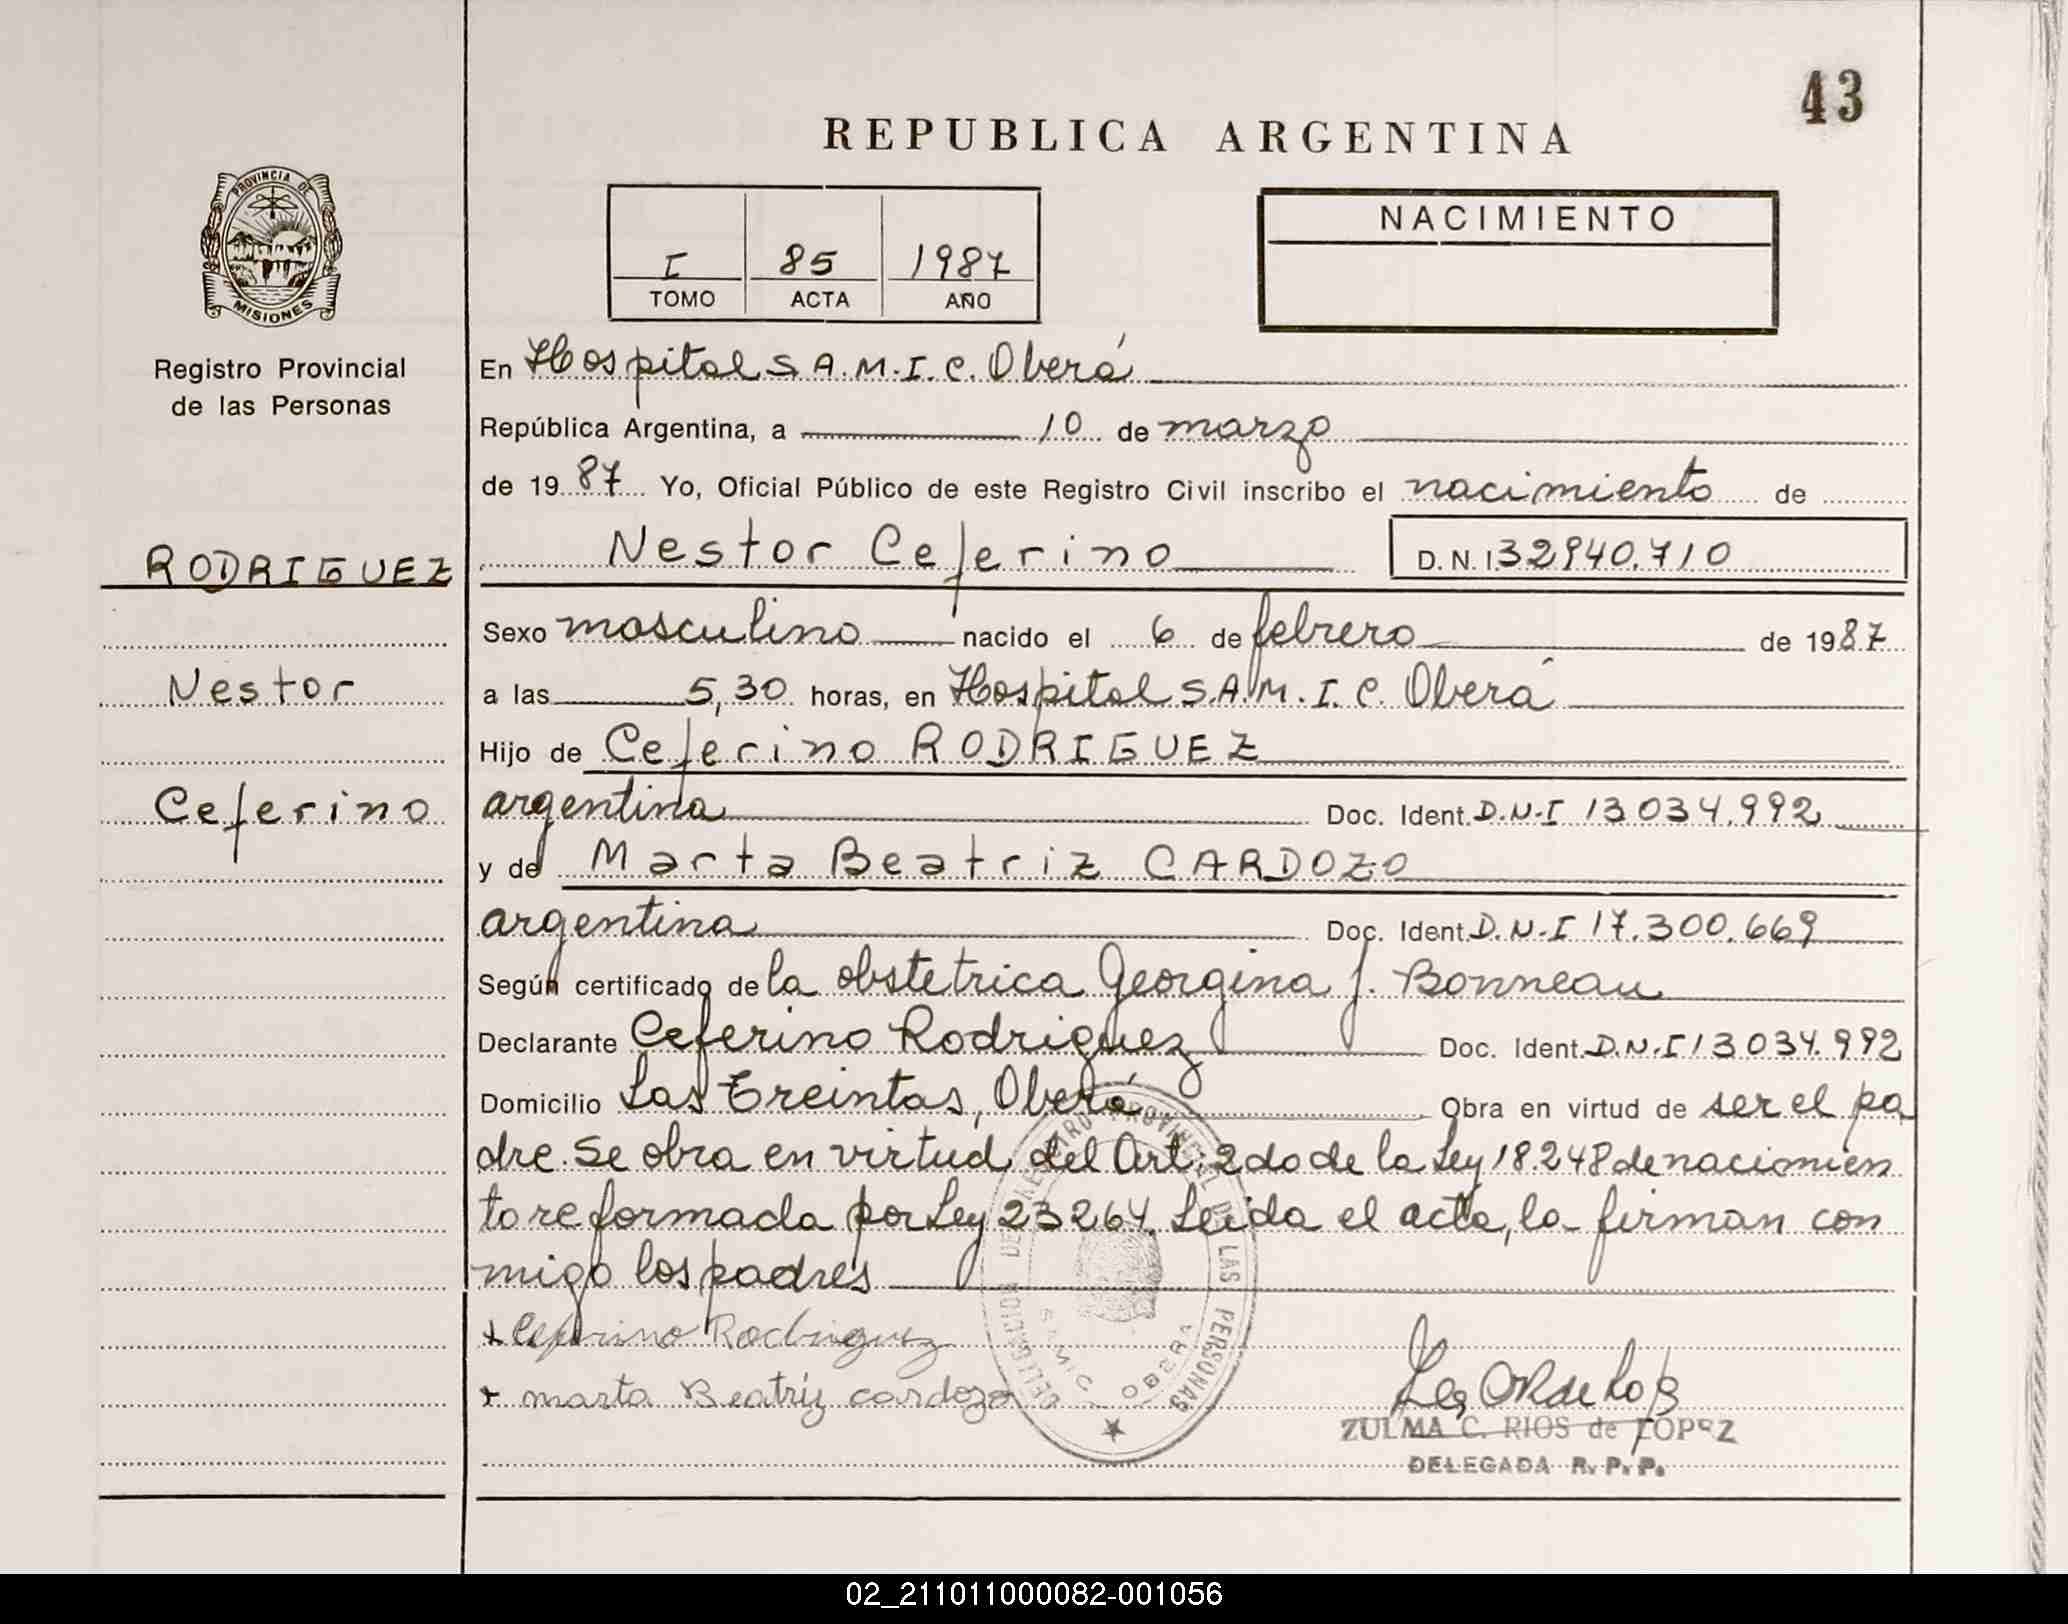 43
REPUBLICA ARGENTINA
PROVINCIA DE
MISIONES
Registro Provincial
de las Personas
I 85 1987
TOMO ACTA AÑO
NACIMIENTO
En Hospital S.A.M.I.C. Oberá
República Argentina, a 10 de marzo
de 1987 Yo, Oficial Público de este Registro Civil inscribo el nacimiento de
RODRIGUEZ
Nestor Ceferino D.N.I. 32940.710
Sexo masculino nacido el 6 de febrero de 1987
Nestor
a las 5,30 horas, en Hospital S.A.M.I.C. Oberá
Hijo de Ceferino RODRIGUEZ
Ceferino
argentina Doc. Ident. D.N.I 13034.992
y de Marta Beatriz CARDOZO
argentina Doc. Ident. D.N.I 17.300.669
Según certificado de la obstetrica Georgina J. Bonneau
Declarante Ceferino Rodriguez Doc. Ident. D.N.I 13034.992
Domicilio Las Treintas, Oberá Obra en virtud de ser el pa
dre. Se obra en virtud del Art. 2do de la Ley 18.248 de nacimien
to reformada por Ley 23264. Leida el acta, la firman con
migo los padres
+ Ceferino Rodriguez
+ marta Beatriz cardozo
DELEGACION DEL REGISTRO PROVINCIAL DE LAS PERSONAS
SAMIC OBERA
ZULMA C. RIOS de LOPEZ
DELEGADA R. P. P.
02_211011000082-001056